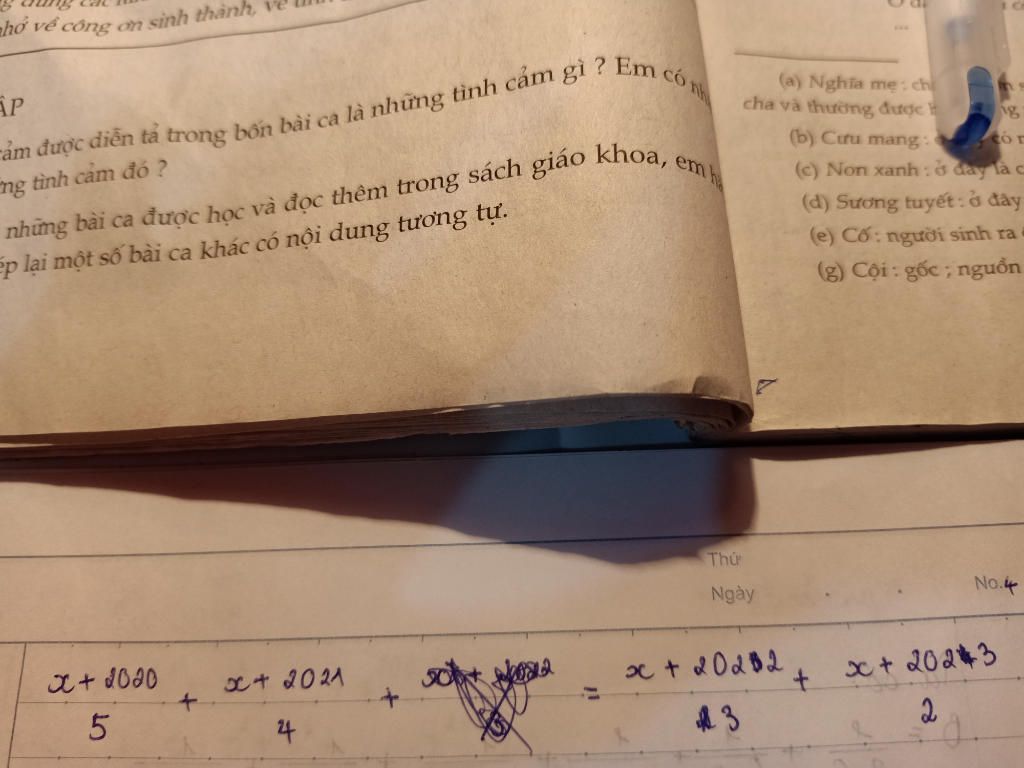 nhớ về công ơn sinh thành, về tình
cảm được diễn tả trong bốn bài ca là những tình cảm gì ? Em có
tình cảm đó ?
những bài ca được học và đọc thêm trong sách giáo khoa, em
lại một số bài ca khác có nội dung tương tự.
(a) Nghĩa mẹ :
cha và thường được
(b) Cưu mang :
(c) Non xanh : ở đây là
(d) Sương tuyết : ở đây
(e) Cố : người sinh ra
(g) Cội : gốc ; nguồn
Thứ
Ngày
No.4
x + 2020 / 5 + x + 2021 / 4 + = x + 2022 / 3 + x + 2023 / 2